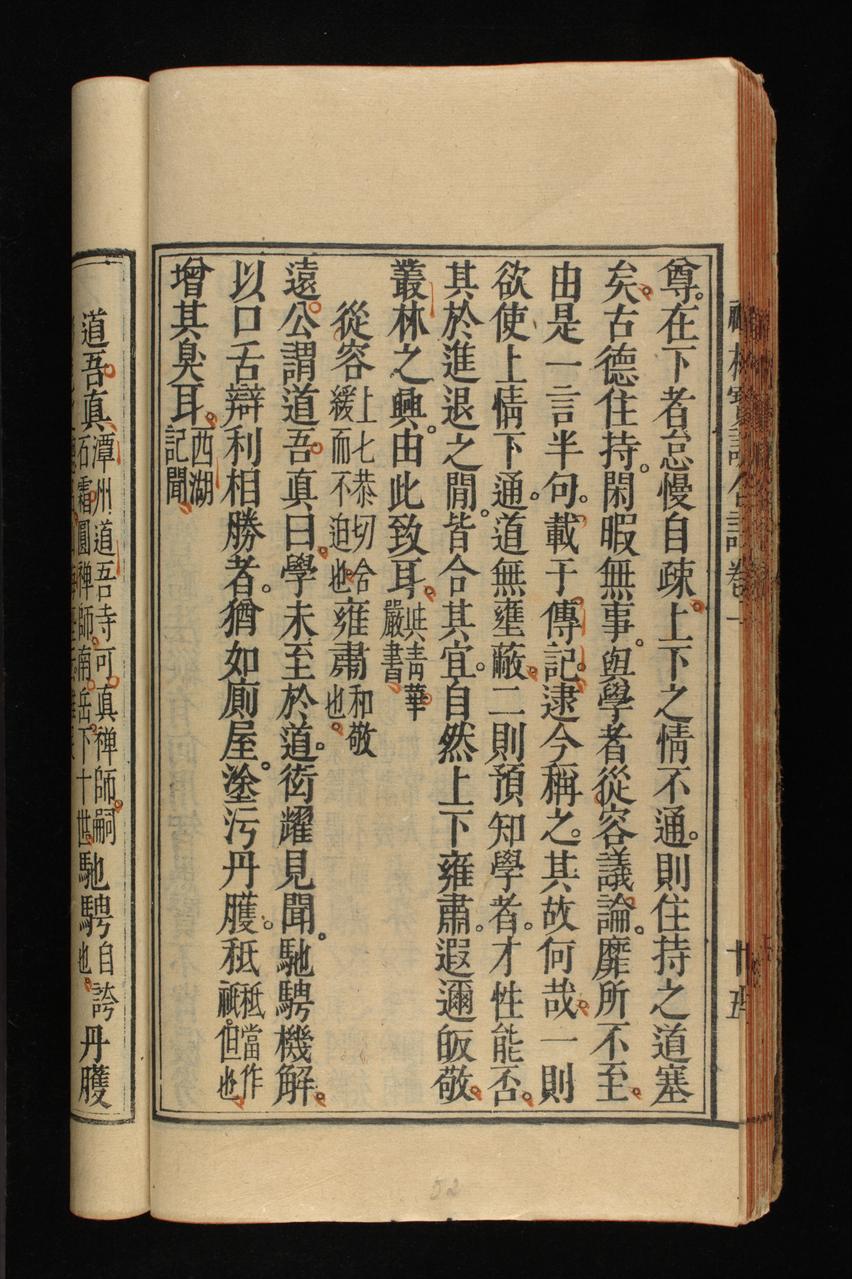 尊。在下者怠慢自疎。上下之情不通。則住持之道塞
矣。古德住持。閑暇無事。與學者從容議論。靡所不至。
由是一言半句。載于傳記。逮今稱之。其故何哉。一則
欲使上情下通。道無壅蔽。二則預知學者。才性能否。
其於進退之閒。皆合其宜。自然上下雍肅。遐邇皈敬。
叢林之興。由此致耳。與青華嚴書
從容上七恭切合緩而不迫也。雍肅和敬也。
遠公謂道吾真曰。學未至於道。衒耀見聞。馳騁機解。
以口舌辯利相勝者。猶如廁屋。塗污丹雘。秪秪當作祇。但也。
增其臭耳。西湖記聞
道吾真潭州道吾寺可真禪師。嗣石霜圓禪師。南岳下十世也。馳騁自誇也。丹雘